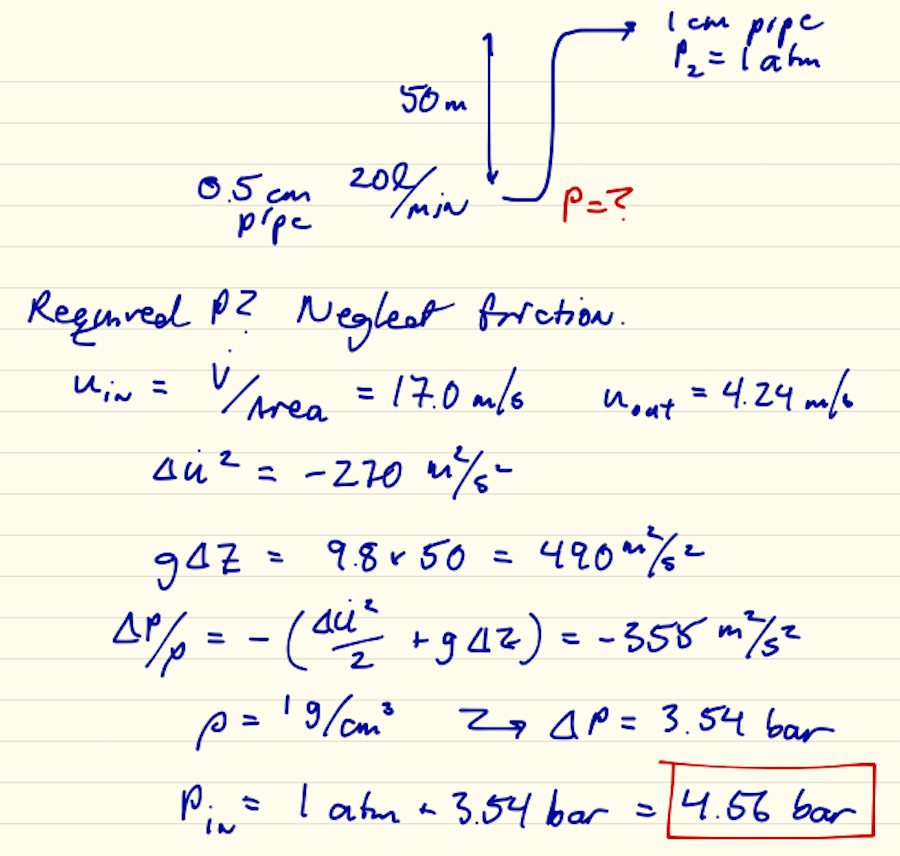 1 cm pipe
P₂ = 1 atm
50 m
0.5 cm pipe
20 l/min
P = ?
Required P? Neglect friction.
u_in = V̇/Area = 17.0 m/s   u_out = 4.24 m/s
Δu̇² = -270 m²/s²
gΔZ = 9.8 × 50 = 490 m²/s²
ΔP/ρ = -(Δu̇²/2 + gΔz) = -355 m²/s²
ρ = 1 g/cm³ → ΔP = 3.54 bar
P_in = 1 atm + 3.54 bar = 4.56 bar